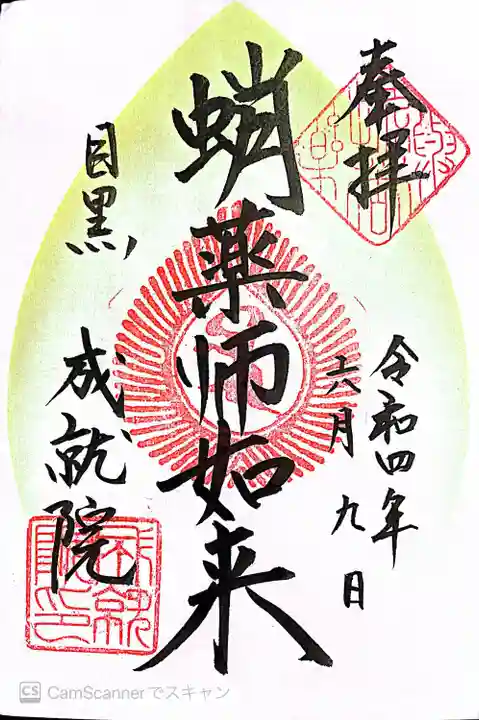 奉拝
令和四年
六月九日
蛸薬師如来
目黒
成就院
CS CamScannerでスキャン